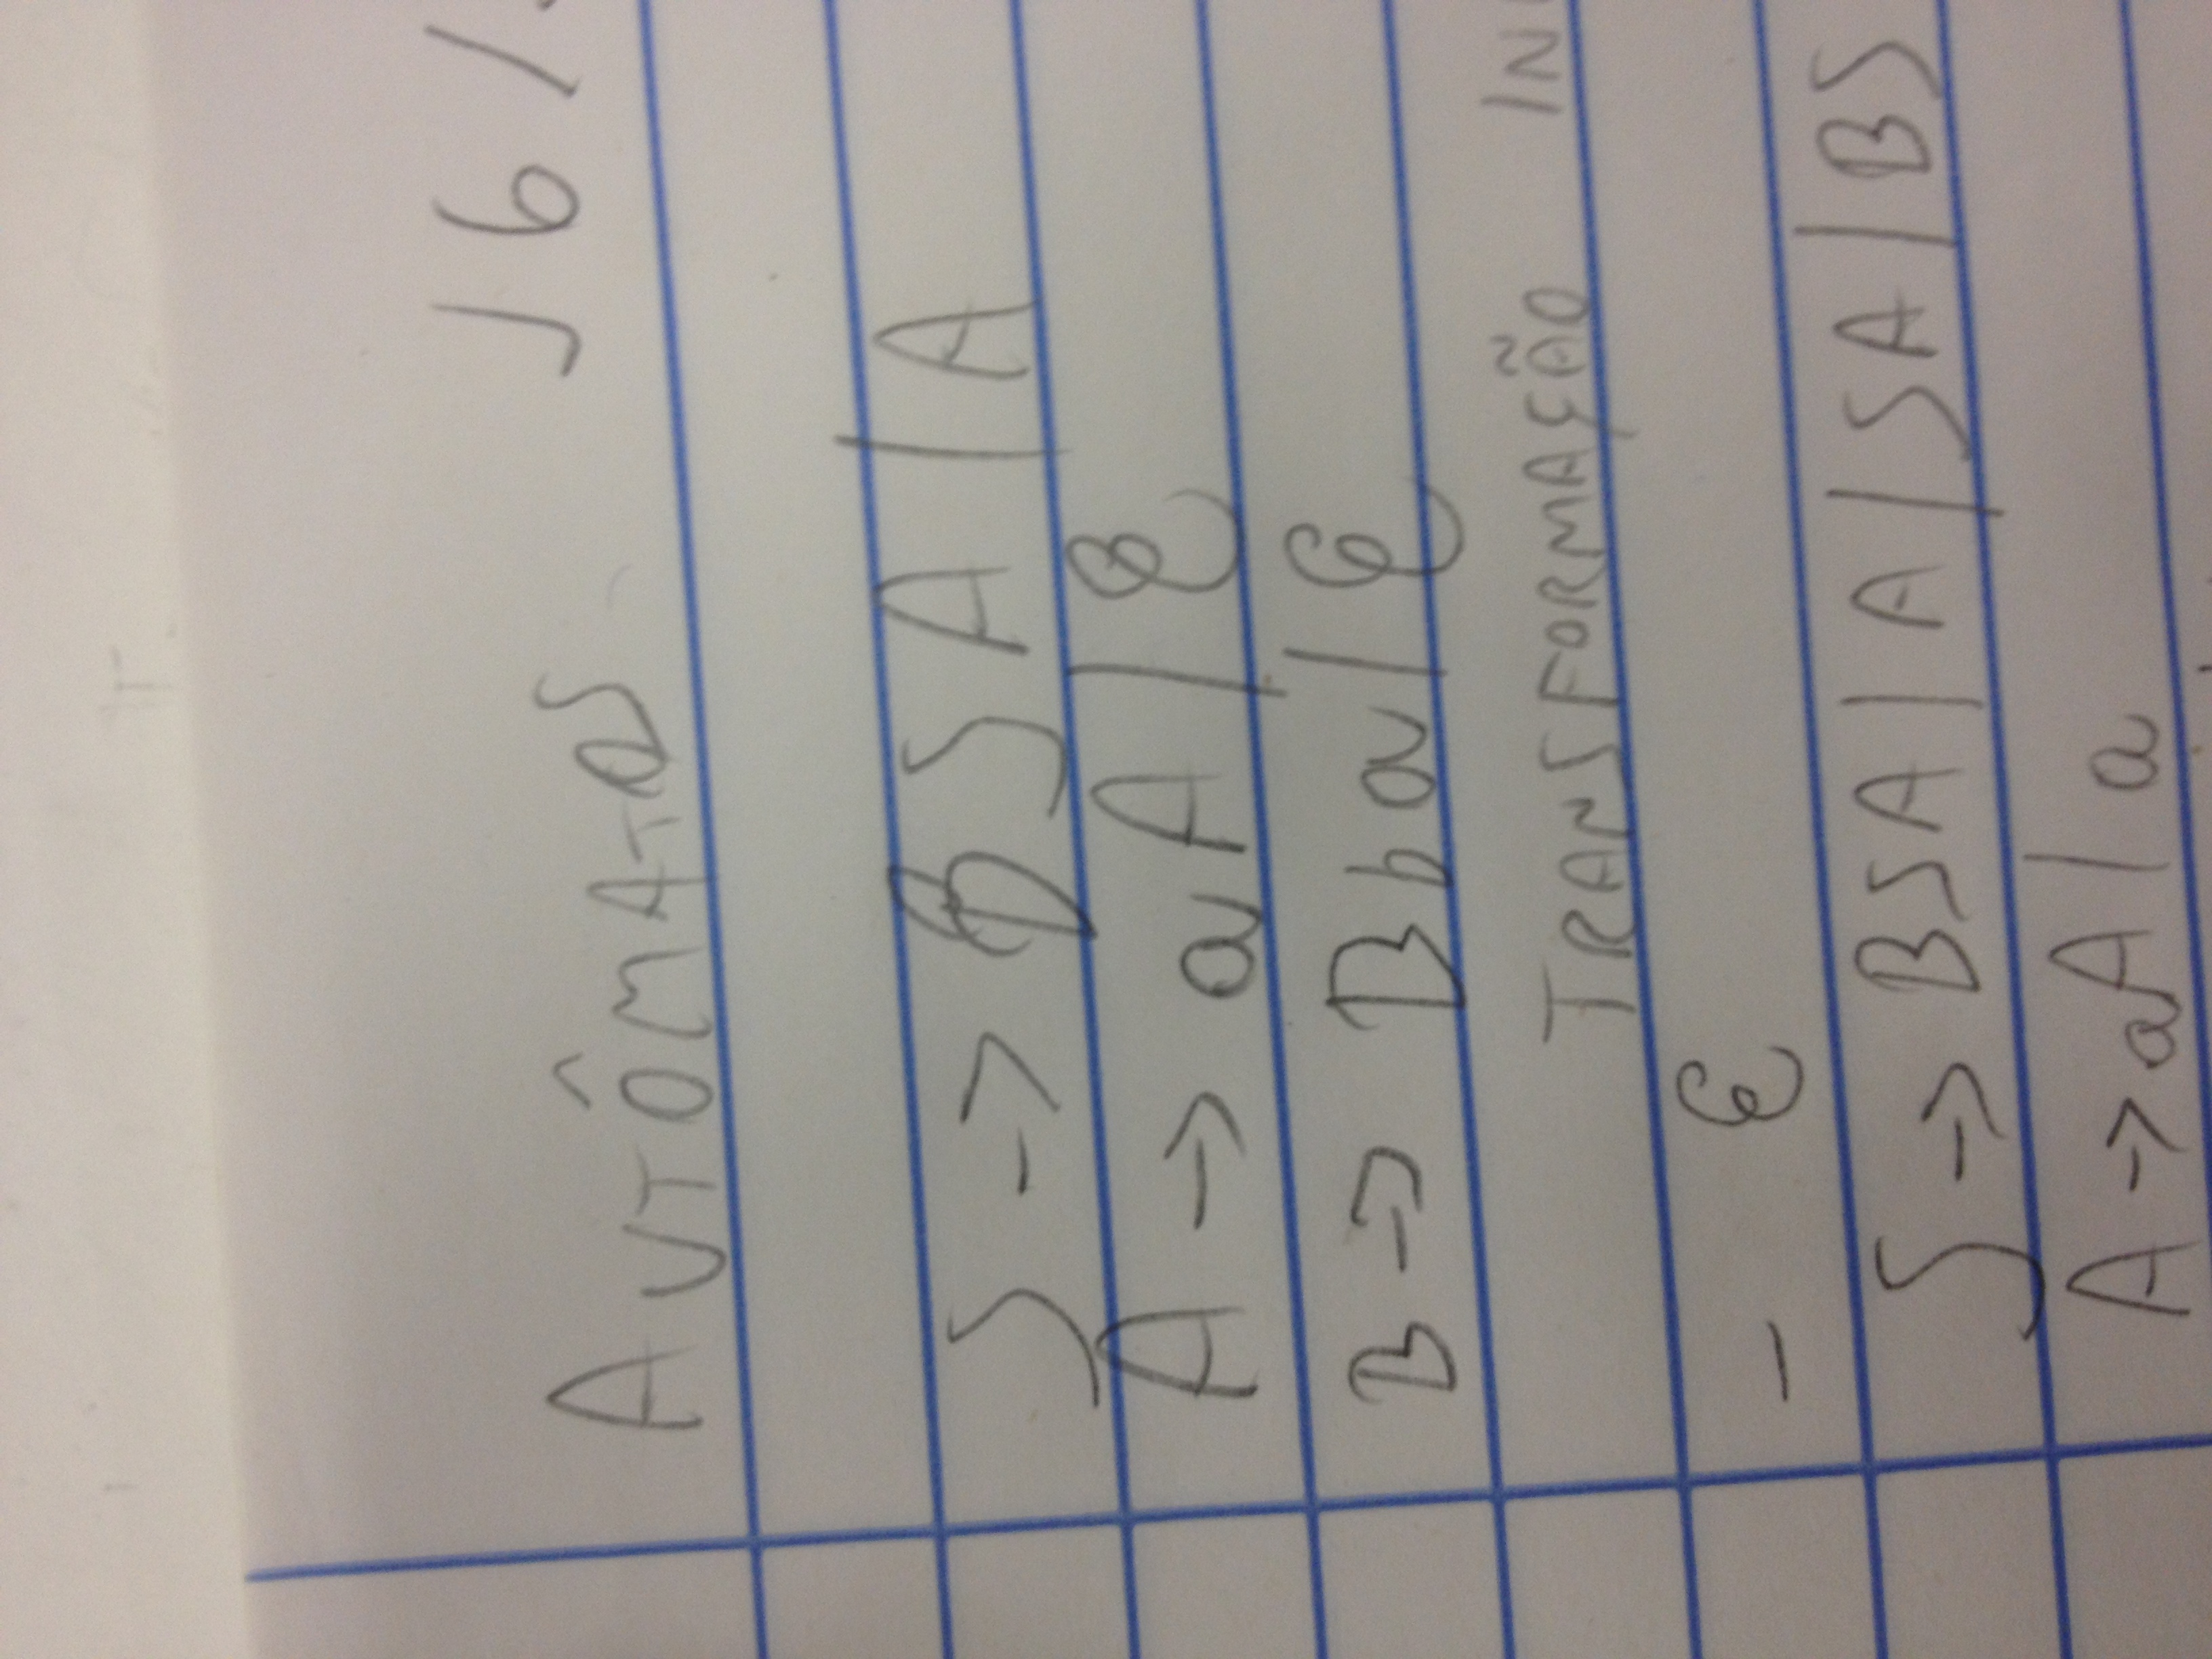 AUTÔMATOS 16/
S -> BSA | A
A -> aA | ε
B -> Bba | ε
TRANSFORMAÇÃO
- ε
S -> BSA | A | SA | BS
A -> aA | a